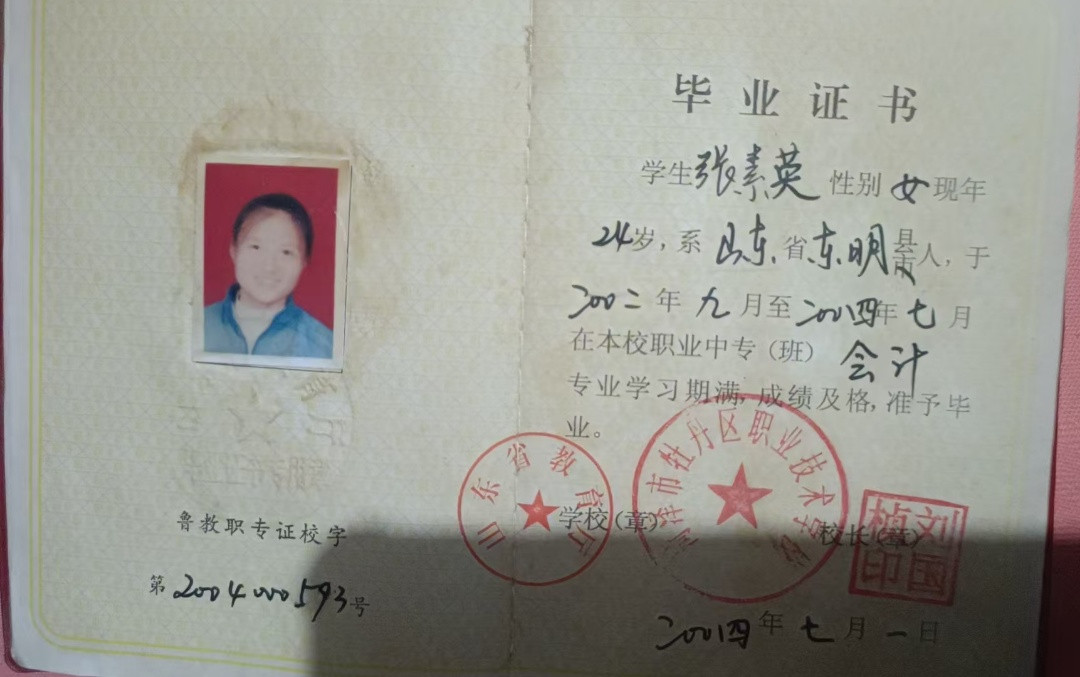 毕业证书
学生张素英 性别 女 现年
24岁，系 山东 省 东明 县市人，于
二00二年 九 月至 二00四年 七 月
在本校职业中专（班） 会计
专业学习期满，成绩及格，准予毕
业。
山东省教育厅
学校（章）
市牡丹区职业技术学校
校长（章）
刘国
印
鲁教职专证校字
第 2004000593 号
二00四 年 七 月 一 日